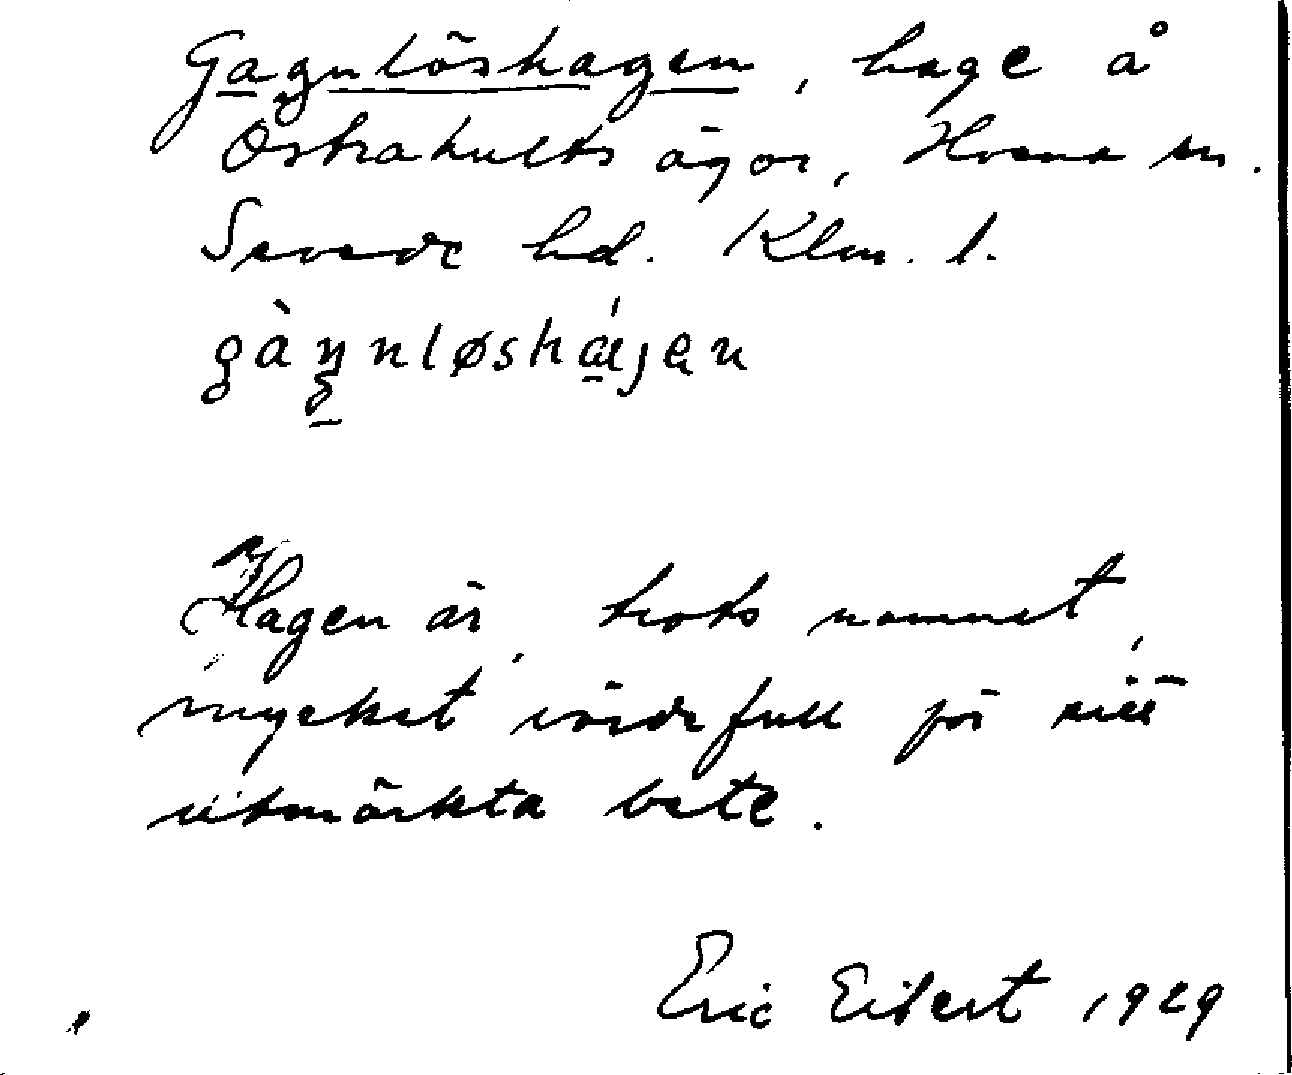 Gagnlöshagen, hage å
Östrahults ägor, Hvena sn.
Sevede hd. Klm. l.
gàŋnløshágen
Hagen är, trots namnet,
mycket värdefull för sitt
utmärkta bete.
Eric Eibert 1929